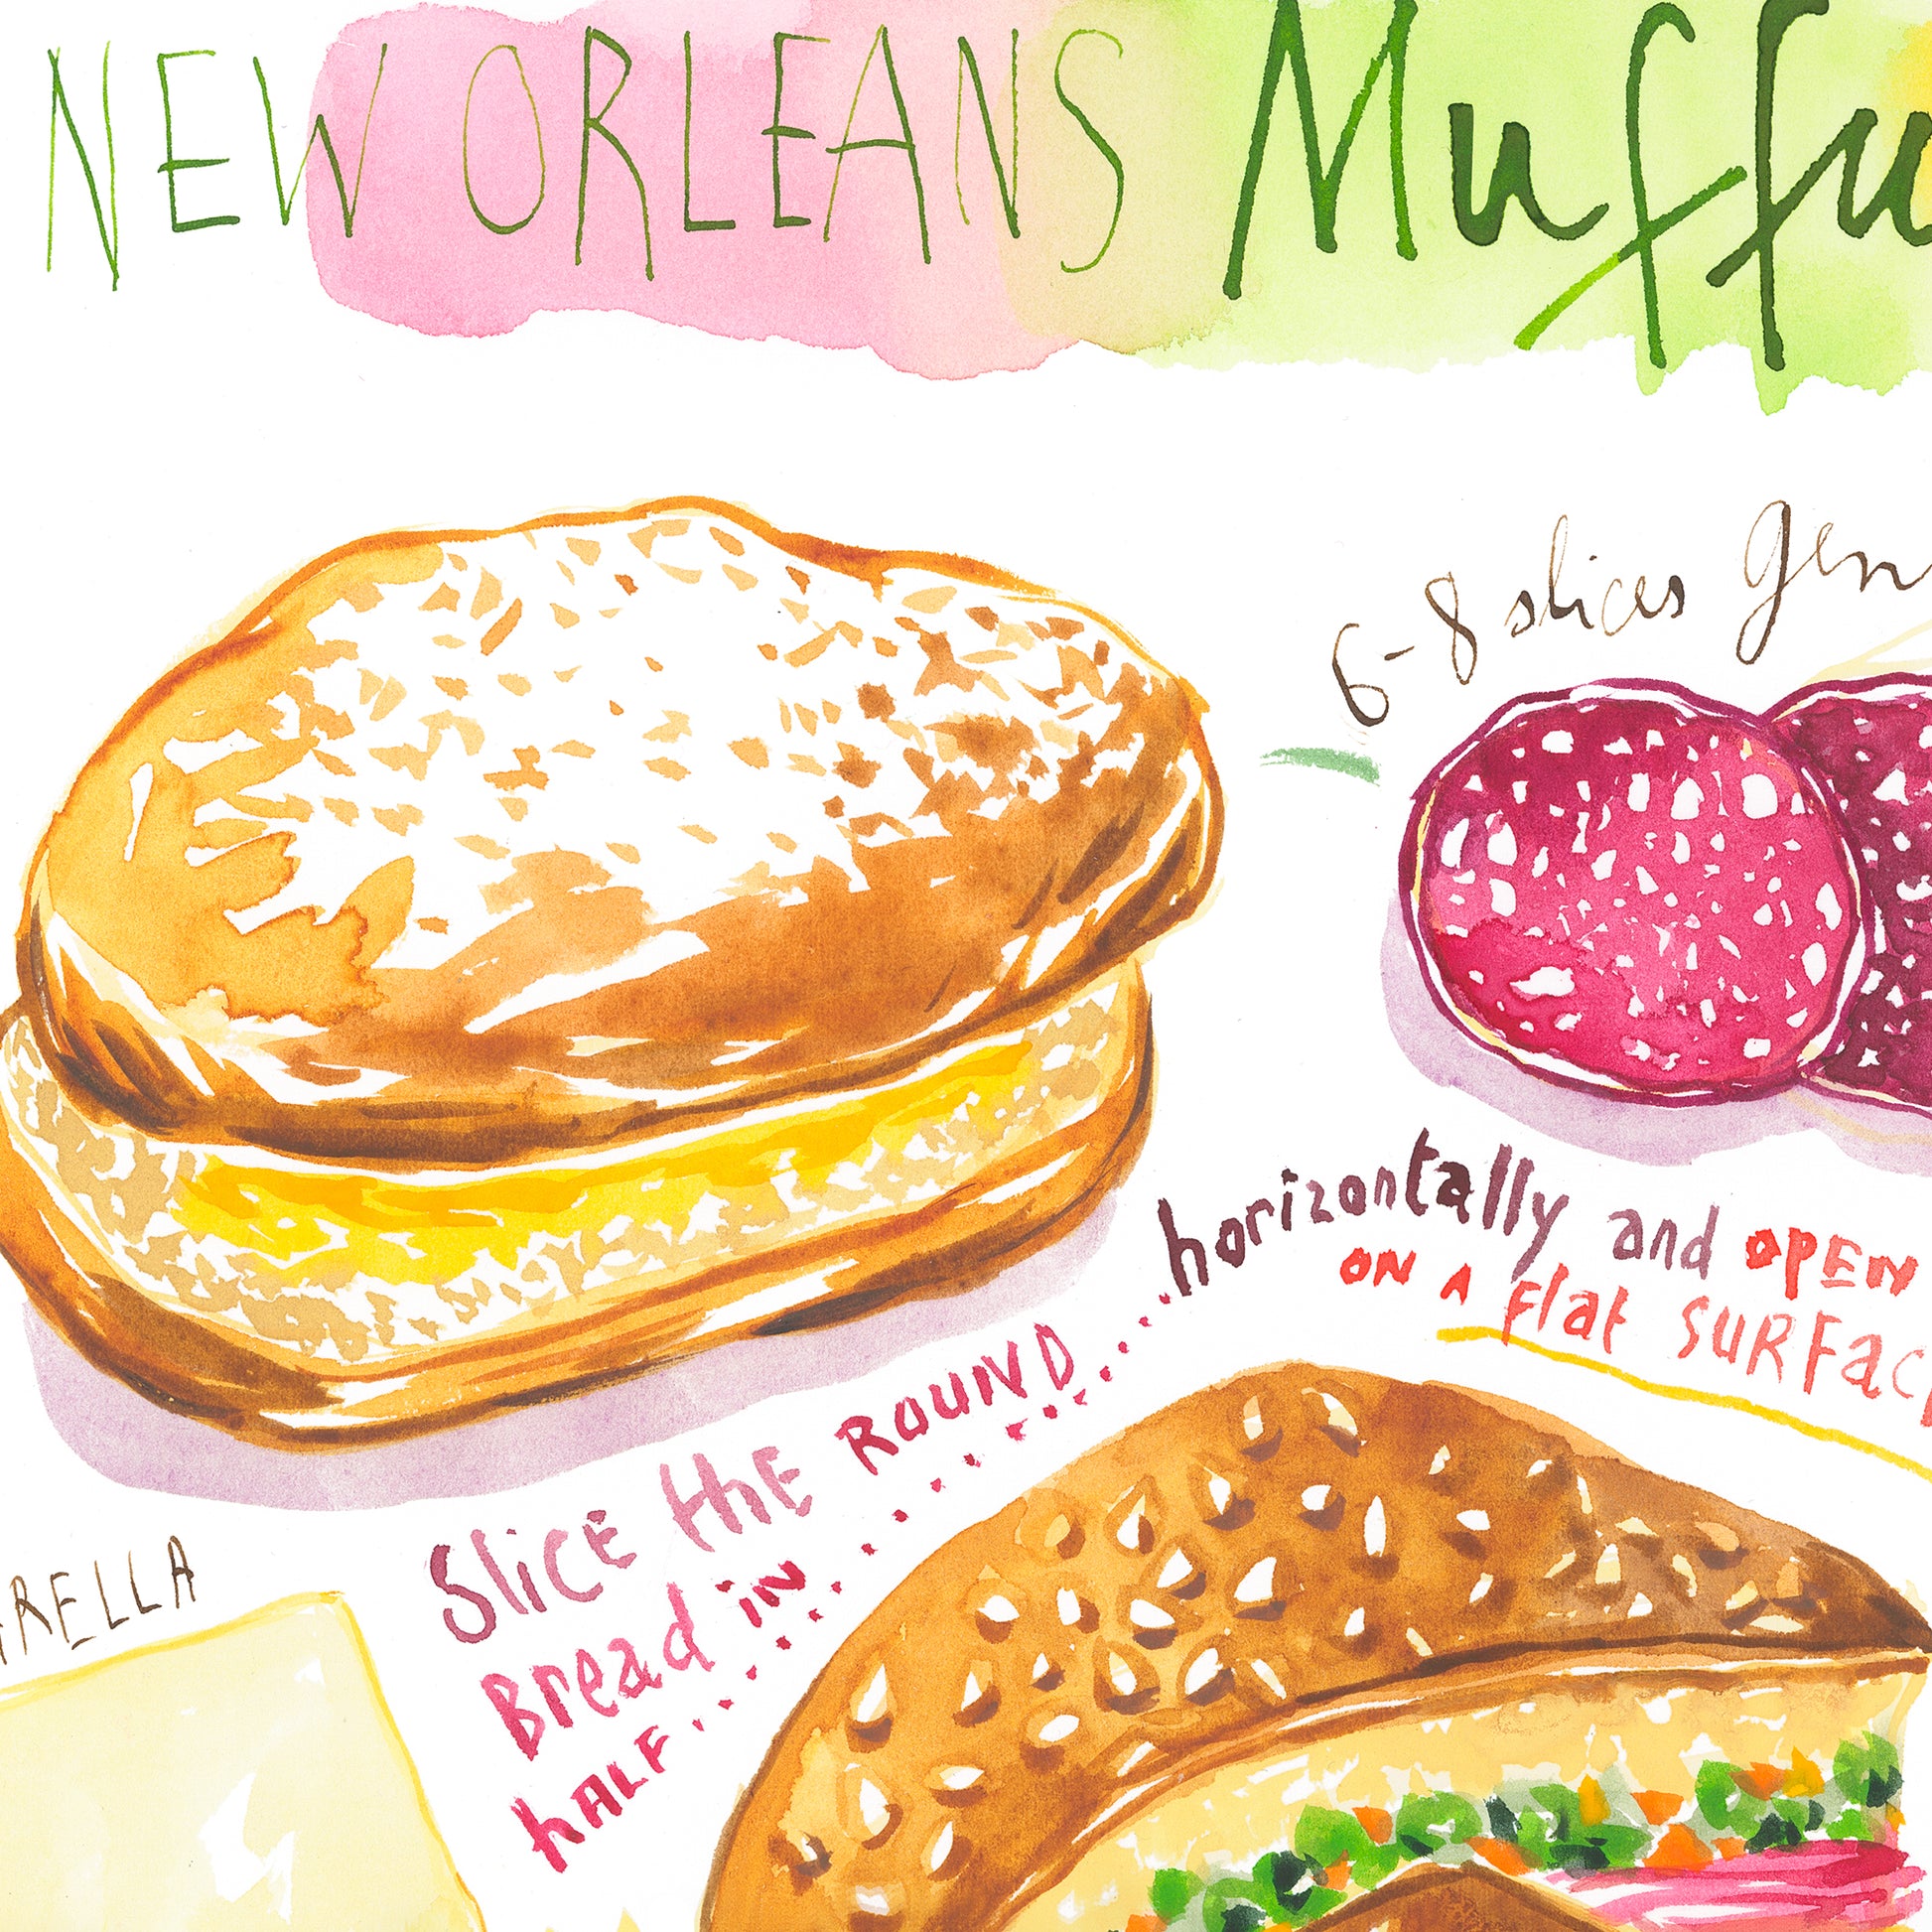 NEW ORLEANS Muffu
6-8 slices gen
horizontally and OPEN
ON A flat SURFAC
Slice the ROUND
Bread in
hALF
RELLA